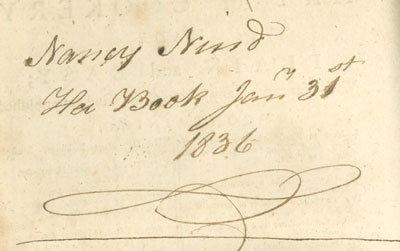 Nancy Nind
Her Book Jan.y 31st
1836